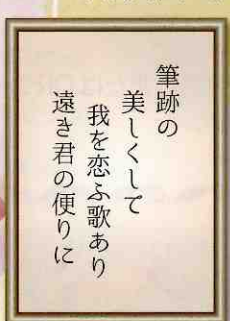 筆跡の
美しくして
我を恋ふ歌あり
遠き君の便りに